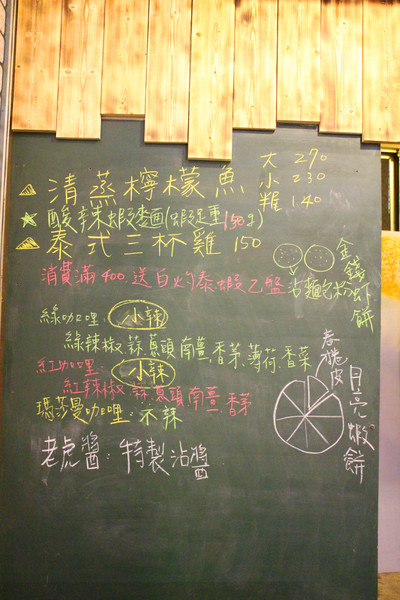 清蒸檸檬魚 大 270
小 230
糎 140
酸辣蝦麵(蝦足重150g)
泰式三杯雞 150
消費滿400.送白灼泰蝦乙盤
金錢蝦餅
麵包粉
綠咖哩 小辣
綠辣椒.蒜.蔥頭.南薑.香茅.薄荷.香菜
紅咖哩: 小辣
紅辣椒.蒜.蔥頭.南薑.香茅
瑪莎曼咖哩:不辣
春捲皮
月亮蝦餅
老虎醬:特製沾醬